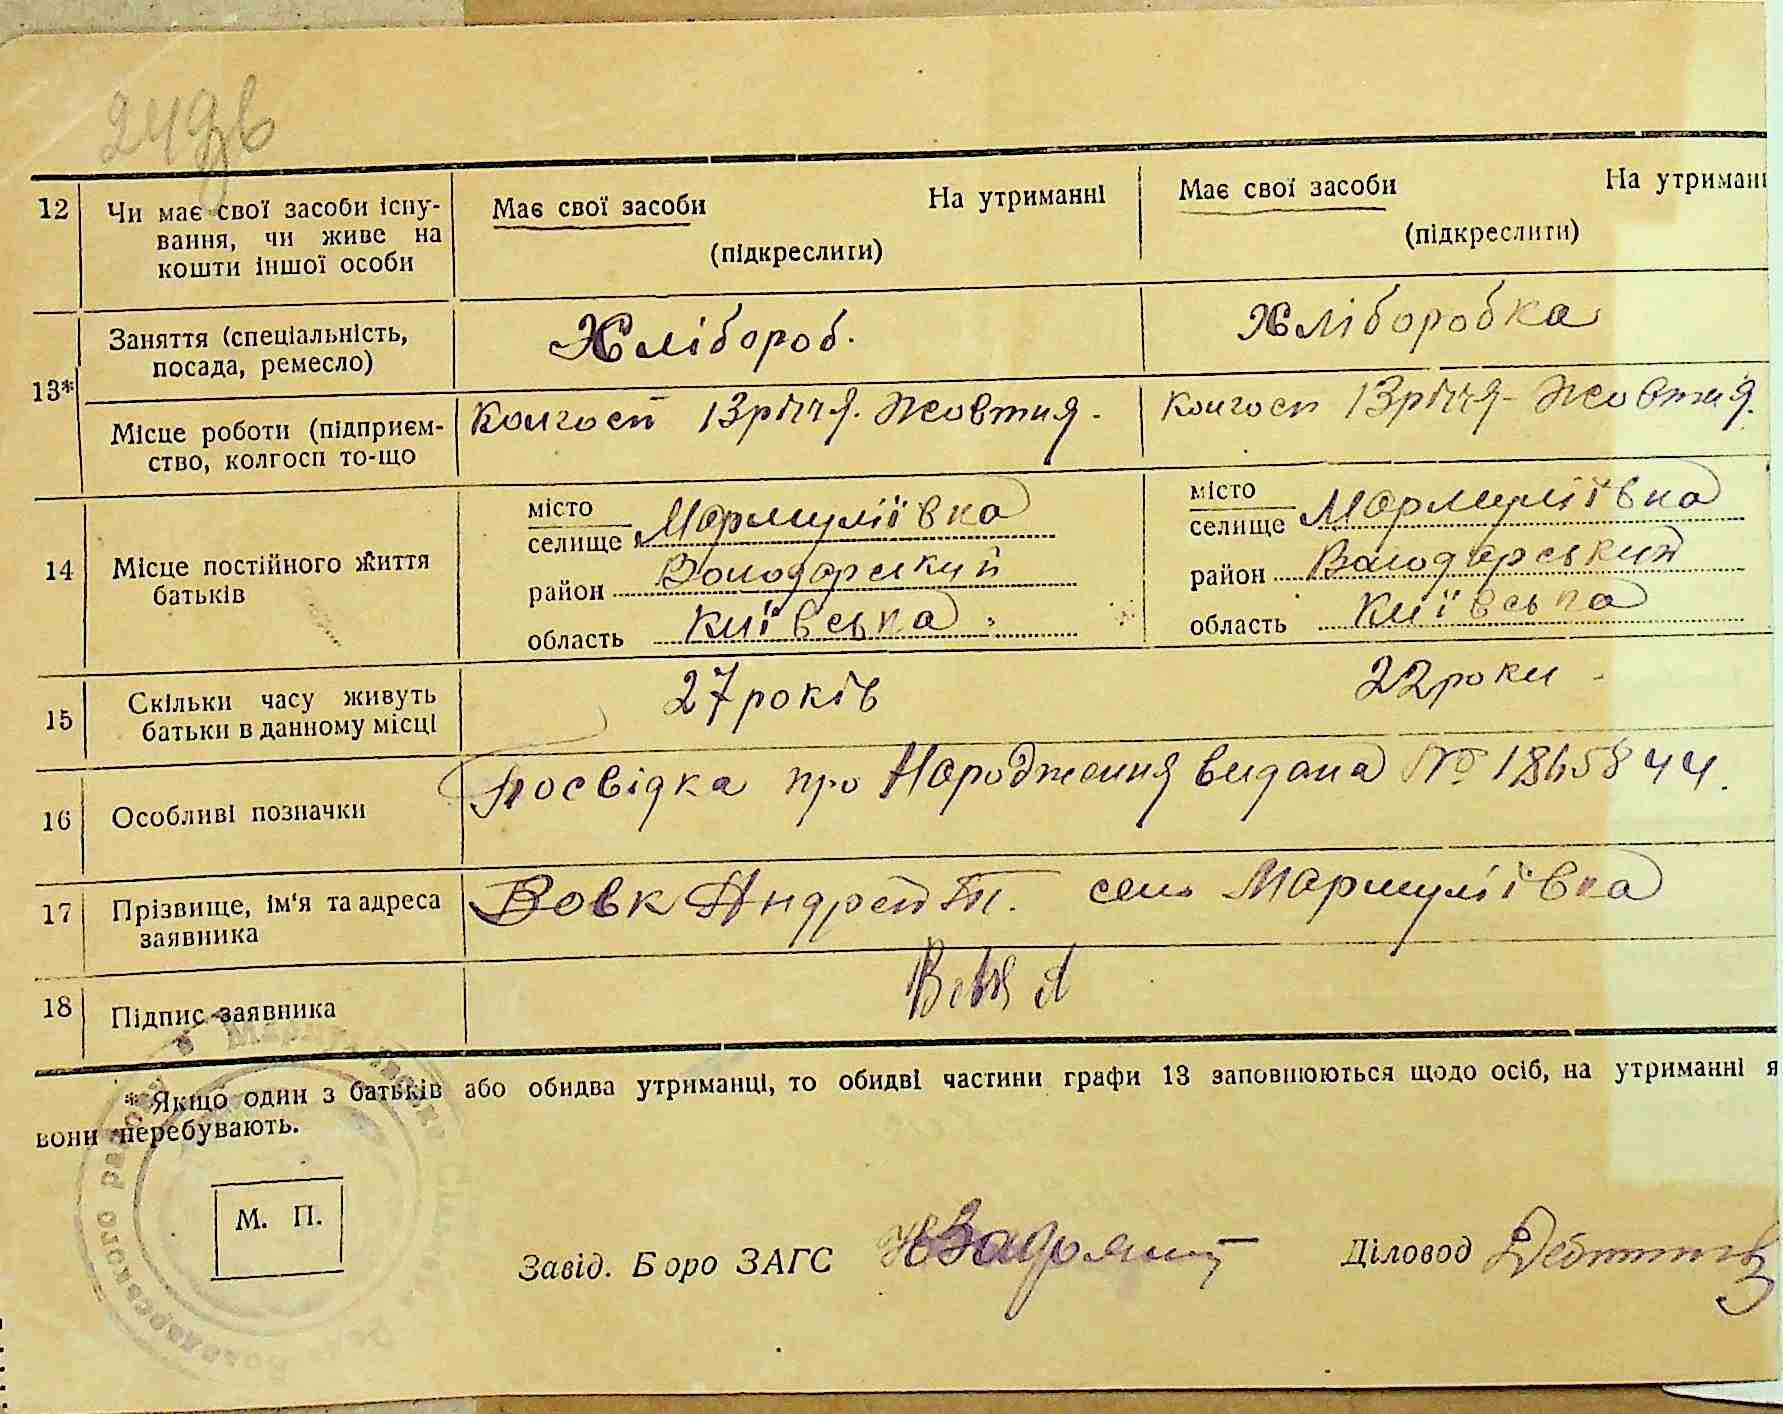 12 Чи має свої засоби існу- Має свої засоби На утриманні Має свої засоби На утриманн
вання, чи живе на (підкреслити) (підкреслити)
кошти іншої особи
13* Заняття (спеціальність, Хлібороб. Хліборобка
посада, ремесло)
Місце роботи (підприєм- Колгосп 13річчя. Жовтня. Колгосп 13річчя - Жовтня.
ство, колгосп то-що
14 Місце постійного життя місто селище Мармуліївка місто селище Мармуліївка
батьків район Володарський район Володарський
область Київська. область Київська
15 Скільки часу живуть 27 років 22 роки -
батьки в данному місці
16 Особливі позначки Посвідка про Народження видана №
17 Прізвище, ім'я та адреса Вовк Андрей Т. село Мармуліївка
заявника
18 Підпис заявника
* Якщо один з батьків або обидва утриманці, то обидві частини графи 13 заповнюються щодо осіб, на утриманні я
вони перебувають.
М. П.
Завід. Боро ЗАГС Діловод
Володарського району